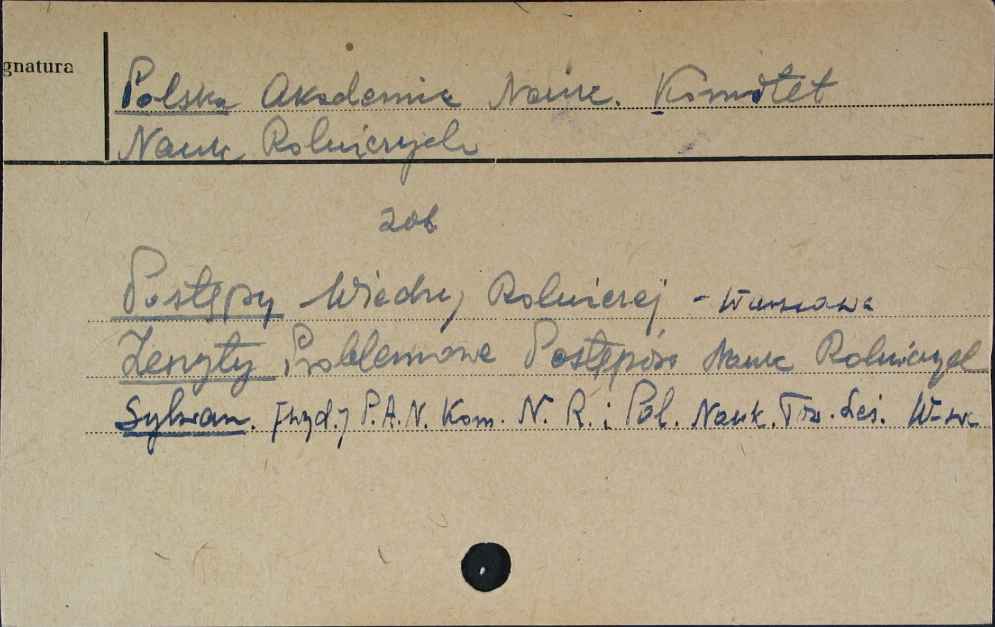 gnatura
Polska Akademia Nauk. Komitet
Nauk Rolniczych
zob
Postępy Wiedzy Rolniczej - Warszawa
Zeszyty Problemowe Postępów Nauk Rolniczych
Sylwan. [wyd.] P.A.N. Kom. N. R. i Pol. Nauk. Tow. Leś. W-wa